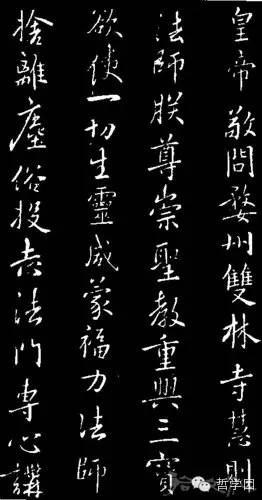 皇帝敬問婺州雙林寺慧則
法師朕尊崇聖教重興三寶
欲使一切生靈咸蒙福力法師
捨離塵俗投志法門專心講
哲学园